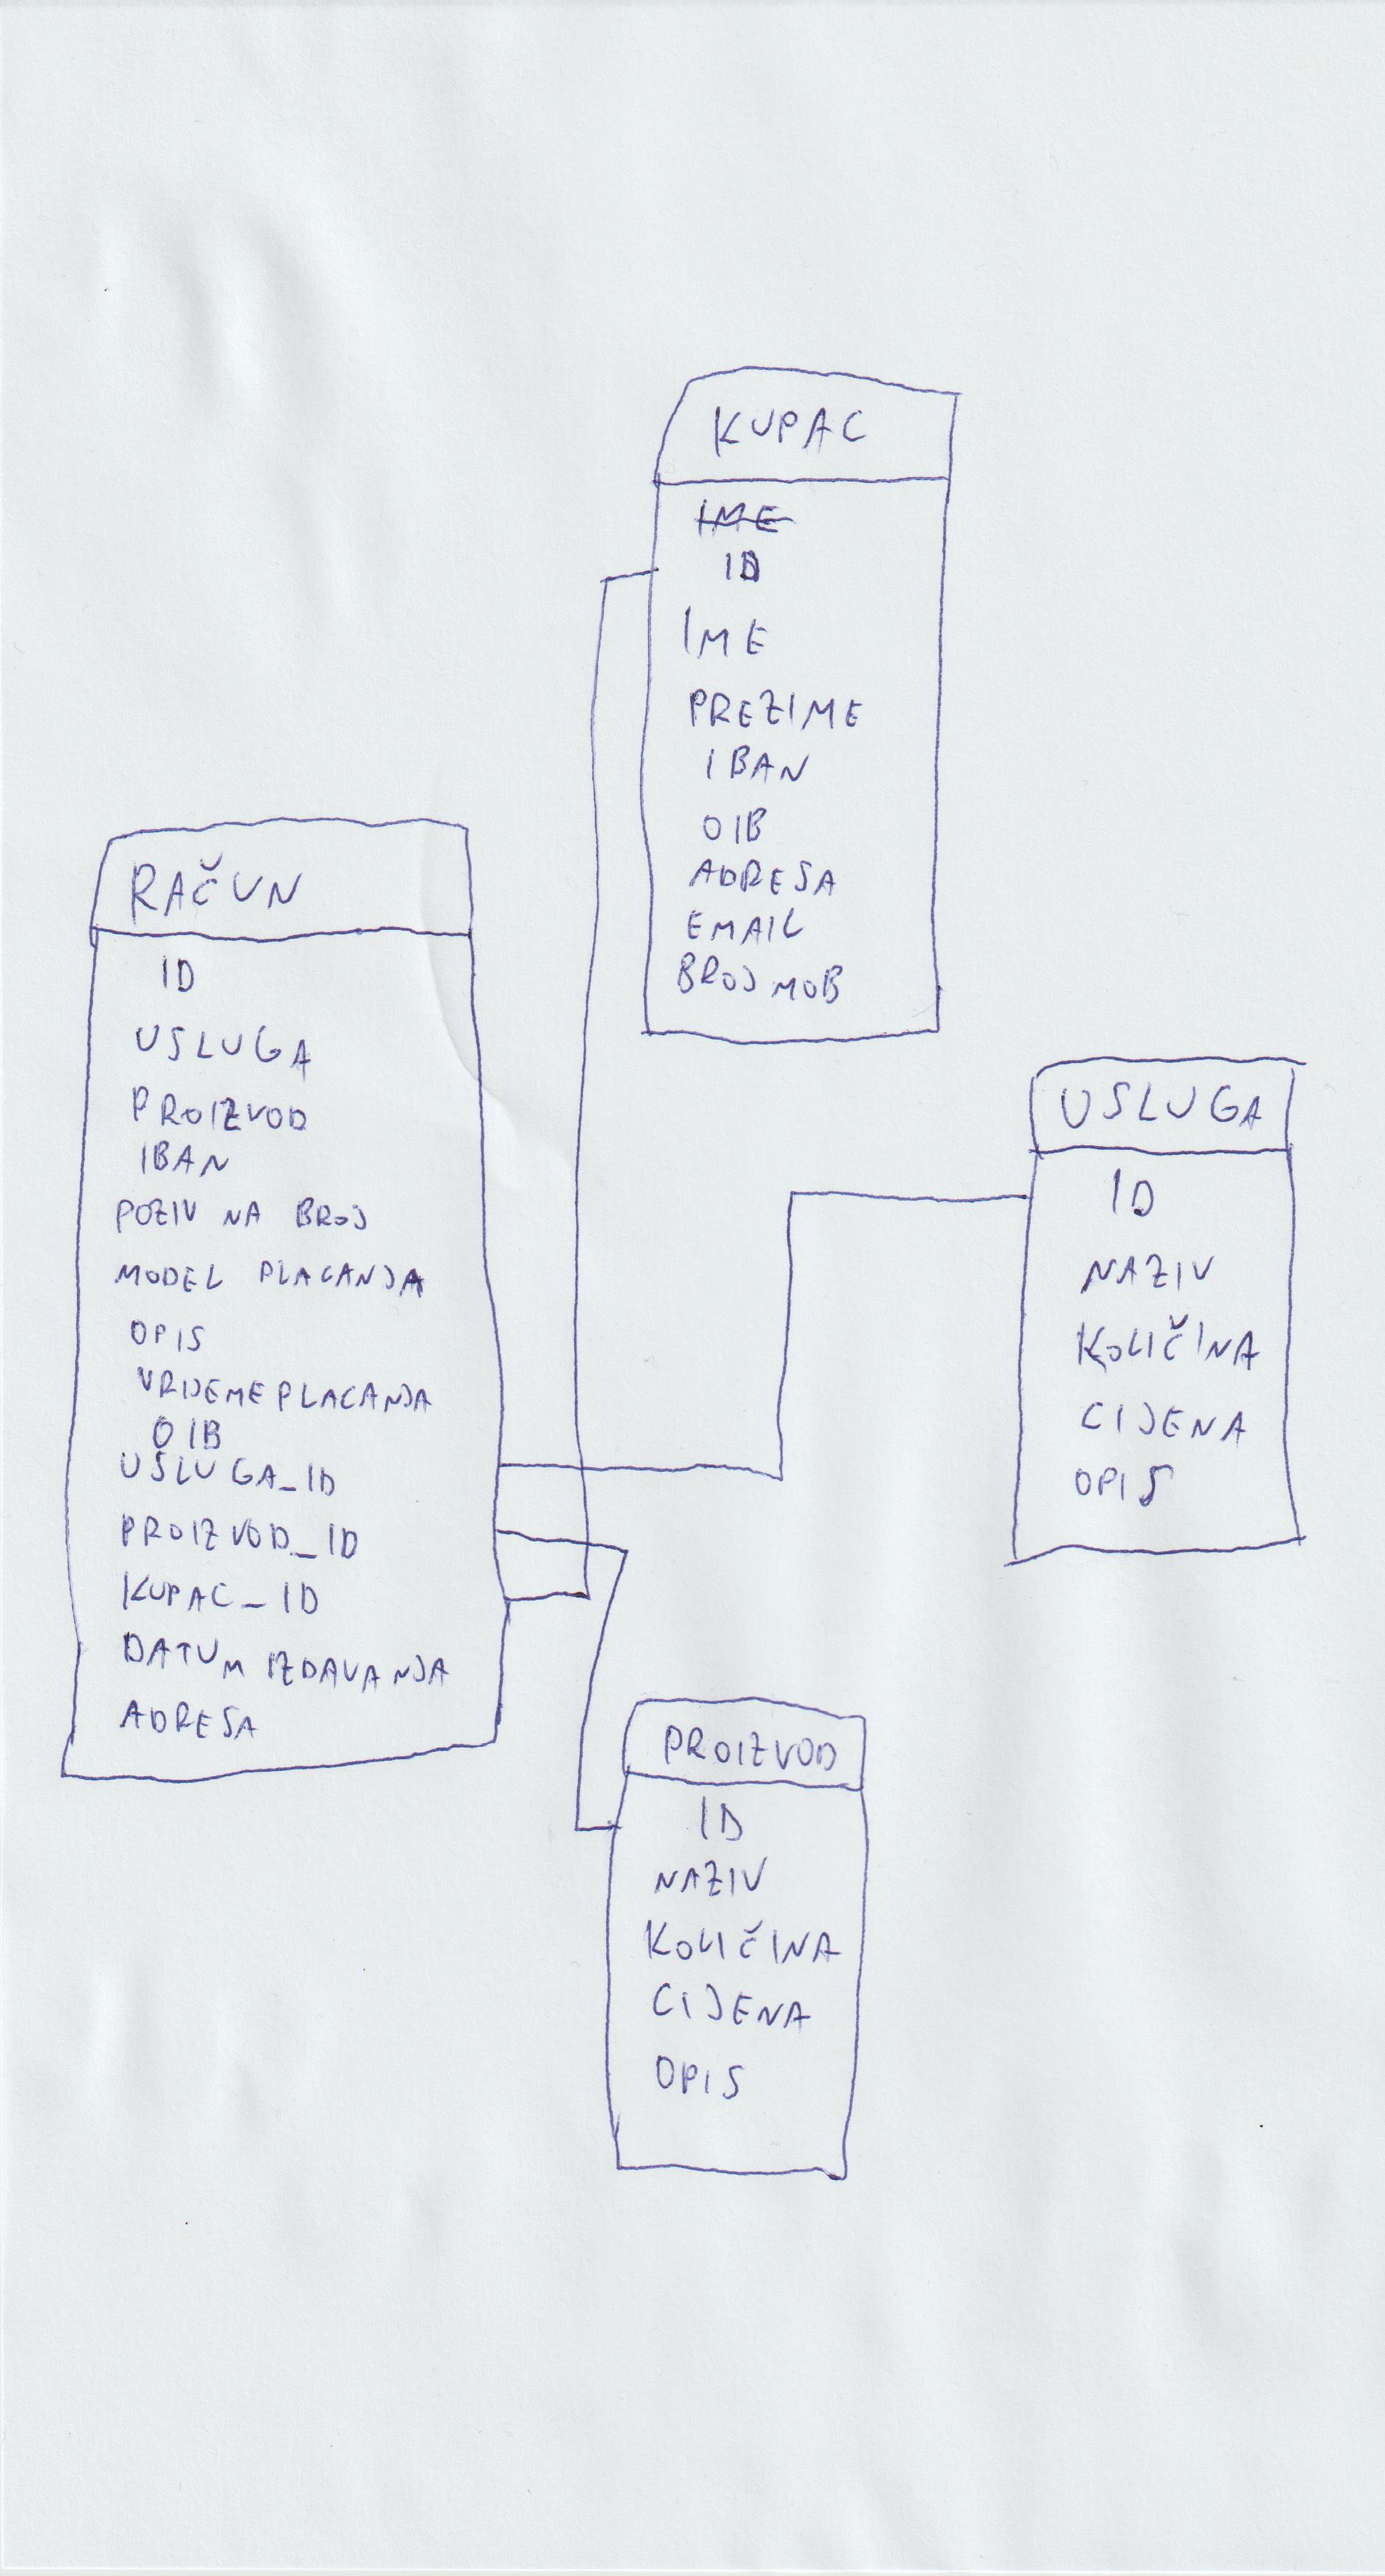 KUPAC
IME
ID
IME
PREZIME
IBAN
OIB
ADRESA
EMAIL
BROJ MOB
RAČUN
ID
USLUGA
PROIZVOD
IBAN
POZIV NA BROJ
MODEL PLACANJA
OPIS
VRIJEME PLACANJA
OIB
USLUGA_ID
PROIZVOD_ID
KUPAC_ID
DATUM IZDAVANJA
ADRESA
USLUGA
ID
NAZIV
KOLIČINA
CIJENA
OPIS
PROIZVOD
ID
NAZIV
KOLIČINA
CIJENA
OPIS